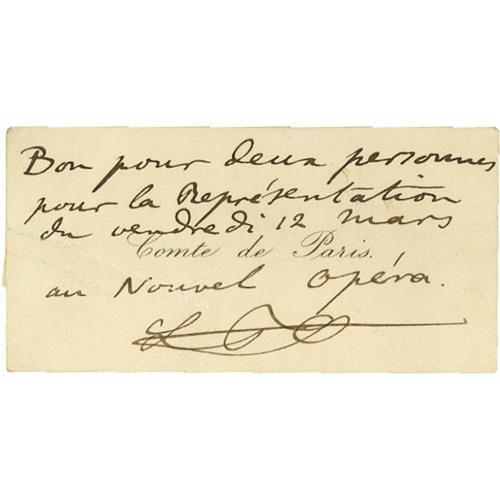 Bon pour deux personnes
pour la Représentation
du vendredi 12 mars
Comte de Paris.
au Nouvel Opéra.